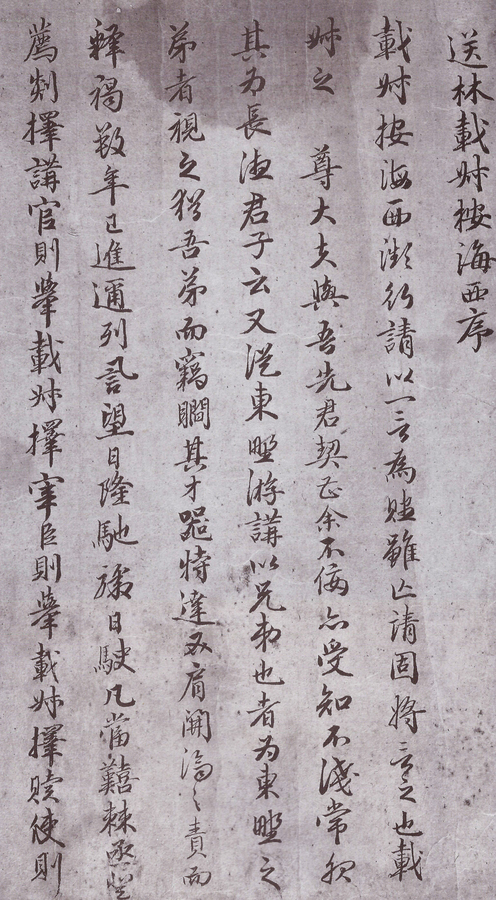 送林載卿按海西序
載卿按海西瀕行請以一言為贐雖亡請固將言之也載
卿之 尊大夫與吾先君契也余不佞亦受知不淺常以
其為長德君子云又從東野游講以兄弟也者為東野之
弟者視之猶吾弟而竊瞷其才器特達孜肩閎深之責而
釋褐數年已進邇列聲望日隆馳騁日駛凡當囏棘承望
薦剡擇講官則舉載卿擇宰臣則舉載卿擇贖使則